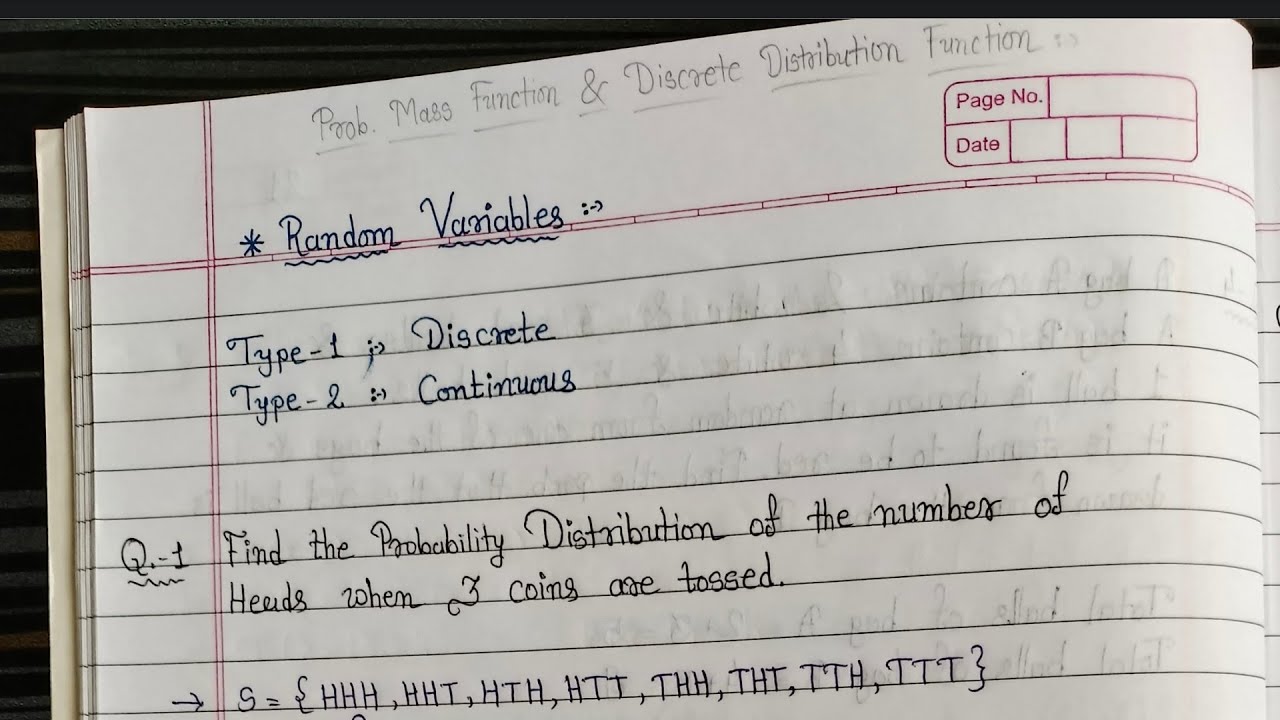 Prob. Mass Function & Discrete Distribution Function :-
Page No.
Date
* Random Variables :->
Type-1 :-> Discrete
Type-2 :-> Continuous
Q.-1 Find the Probability Distribution of the number of
Heads when 3 coins are tossed.
→ S = { HHH, HHT, HTH, HTT, THH, THT, TTH, TTT }